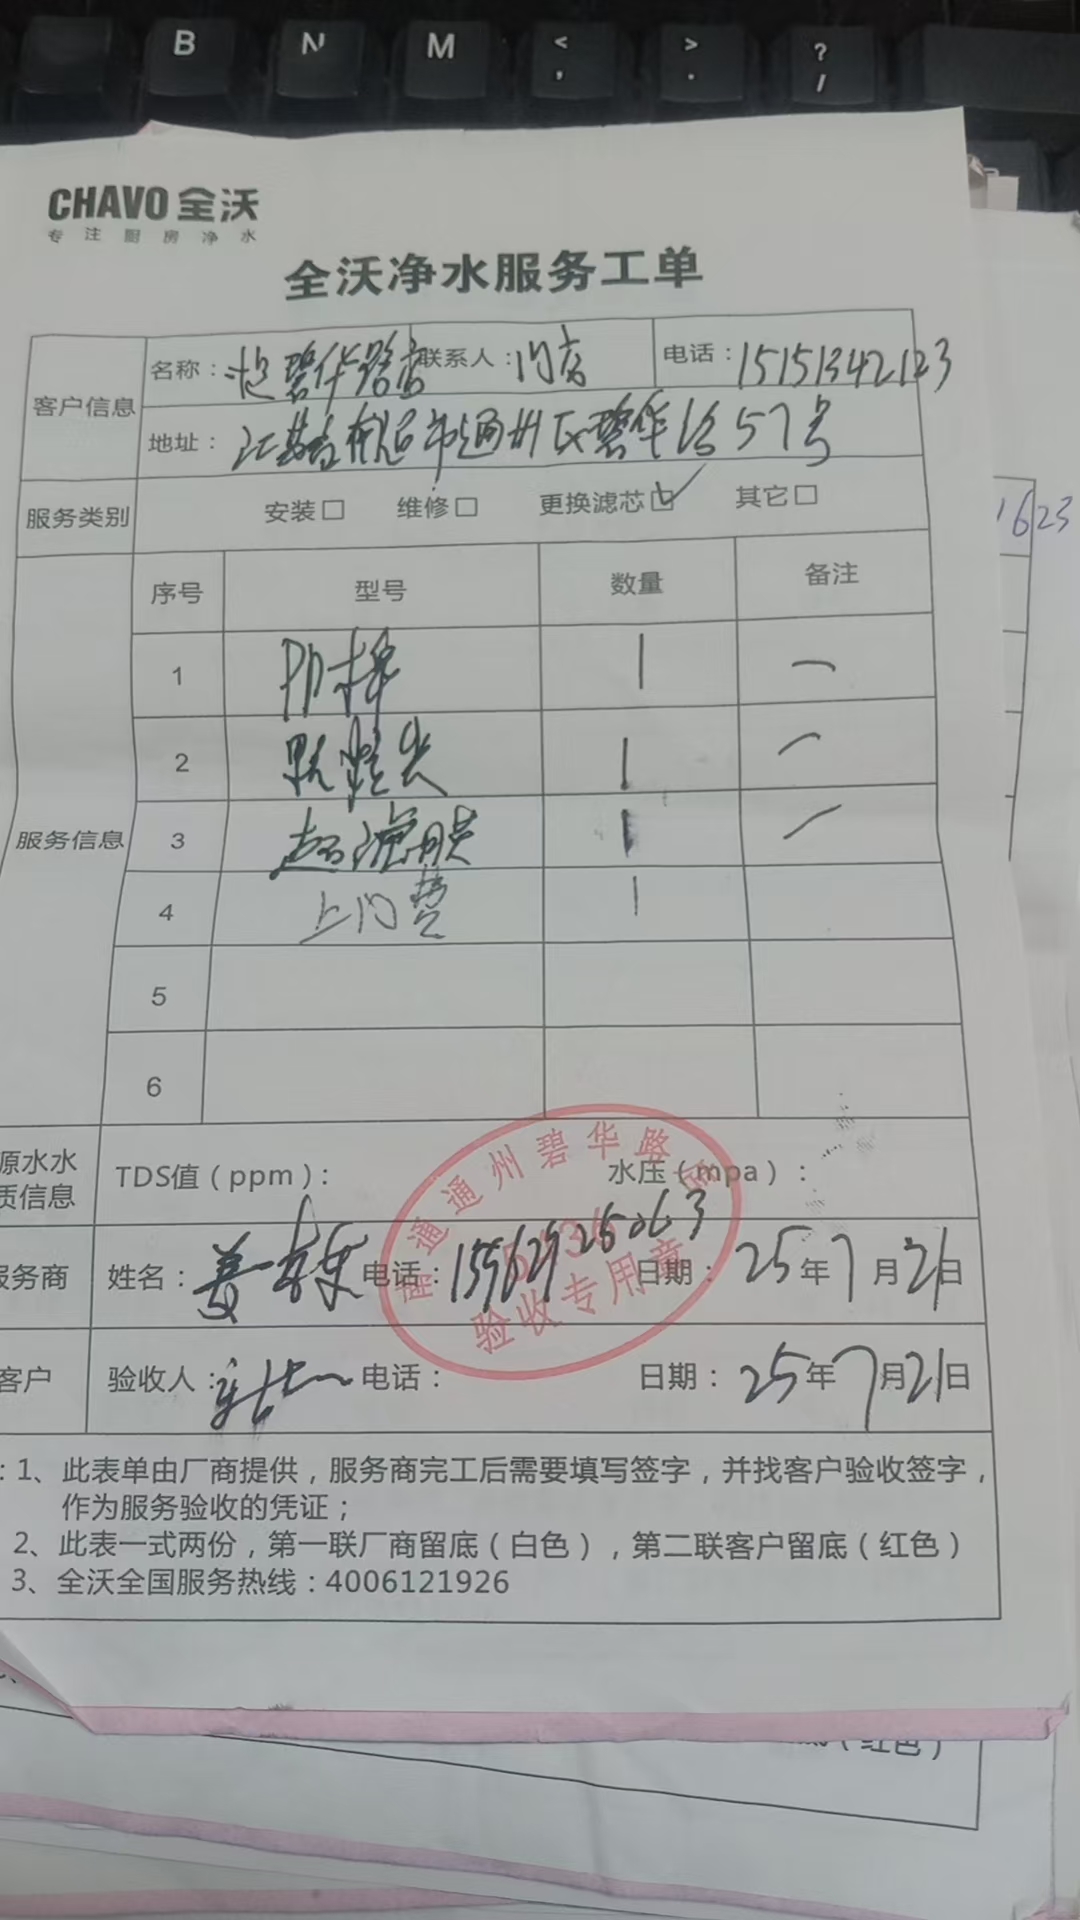 B N M < , > . ? /
CHAVO 全沃
专注厨房净水
全沃净水服务工单
客户信息
名称：碧华路店 联系人：门店 电话：15151342123
地址：江苏省南通市通州区碧华路57号
服务类别 安装□ 维修□ 更换滤芯☑ 其它□
1623
服务信息
序号 型号 数量 备注
1 PP棉 1 一
2 颗粒炭 1 一
3 超滤膜 1 一
4 上门费 1
5
6
源水水质信息 TDS值（ppm）： 水压（mpa）：
南通通州碧华路店
验收专用章
服务商 姓名：姜 电话：15962925063 日期：25年7月21日
客户 验收人： 电话： 日期：25年7月21日
：1、此表单由厂商提供，服务商完工后需要填写签字，并找客户验收签字，
作为服务验收的凭证；
2、此表一式两份，第一联厂商留底（白色），第二联客户留底（红色）
3、全沃全国服务热线：4006121926
（红色）